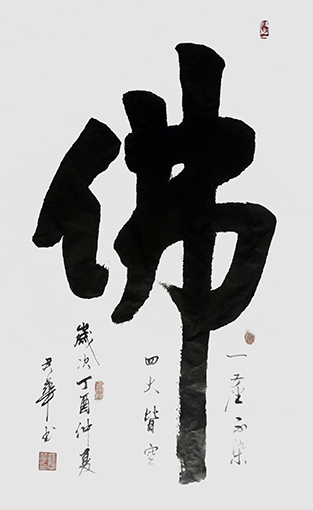 佛
一塵不染
四大皆空
歲次丁酉仲夏
尹華書